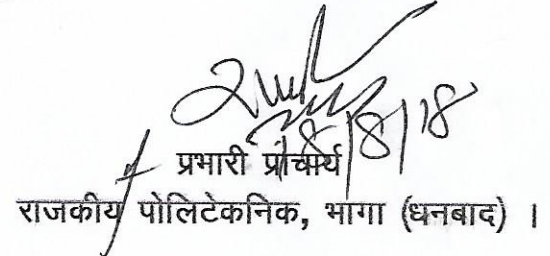 18/8/18
प्रभारी प्राचार्य
राजकीय पोलिटेकनिक, भागा (धनबाद) ।